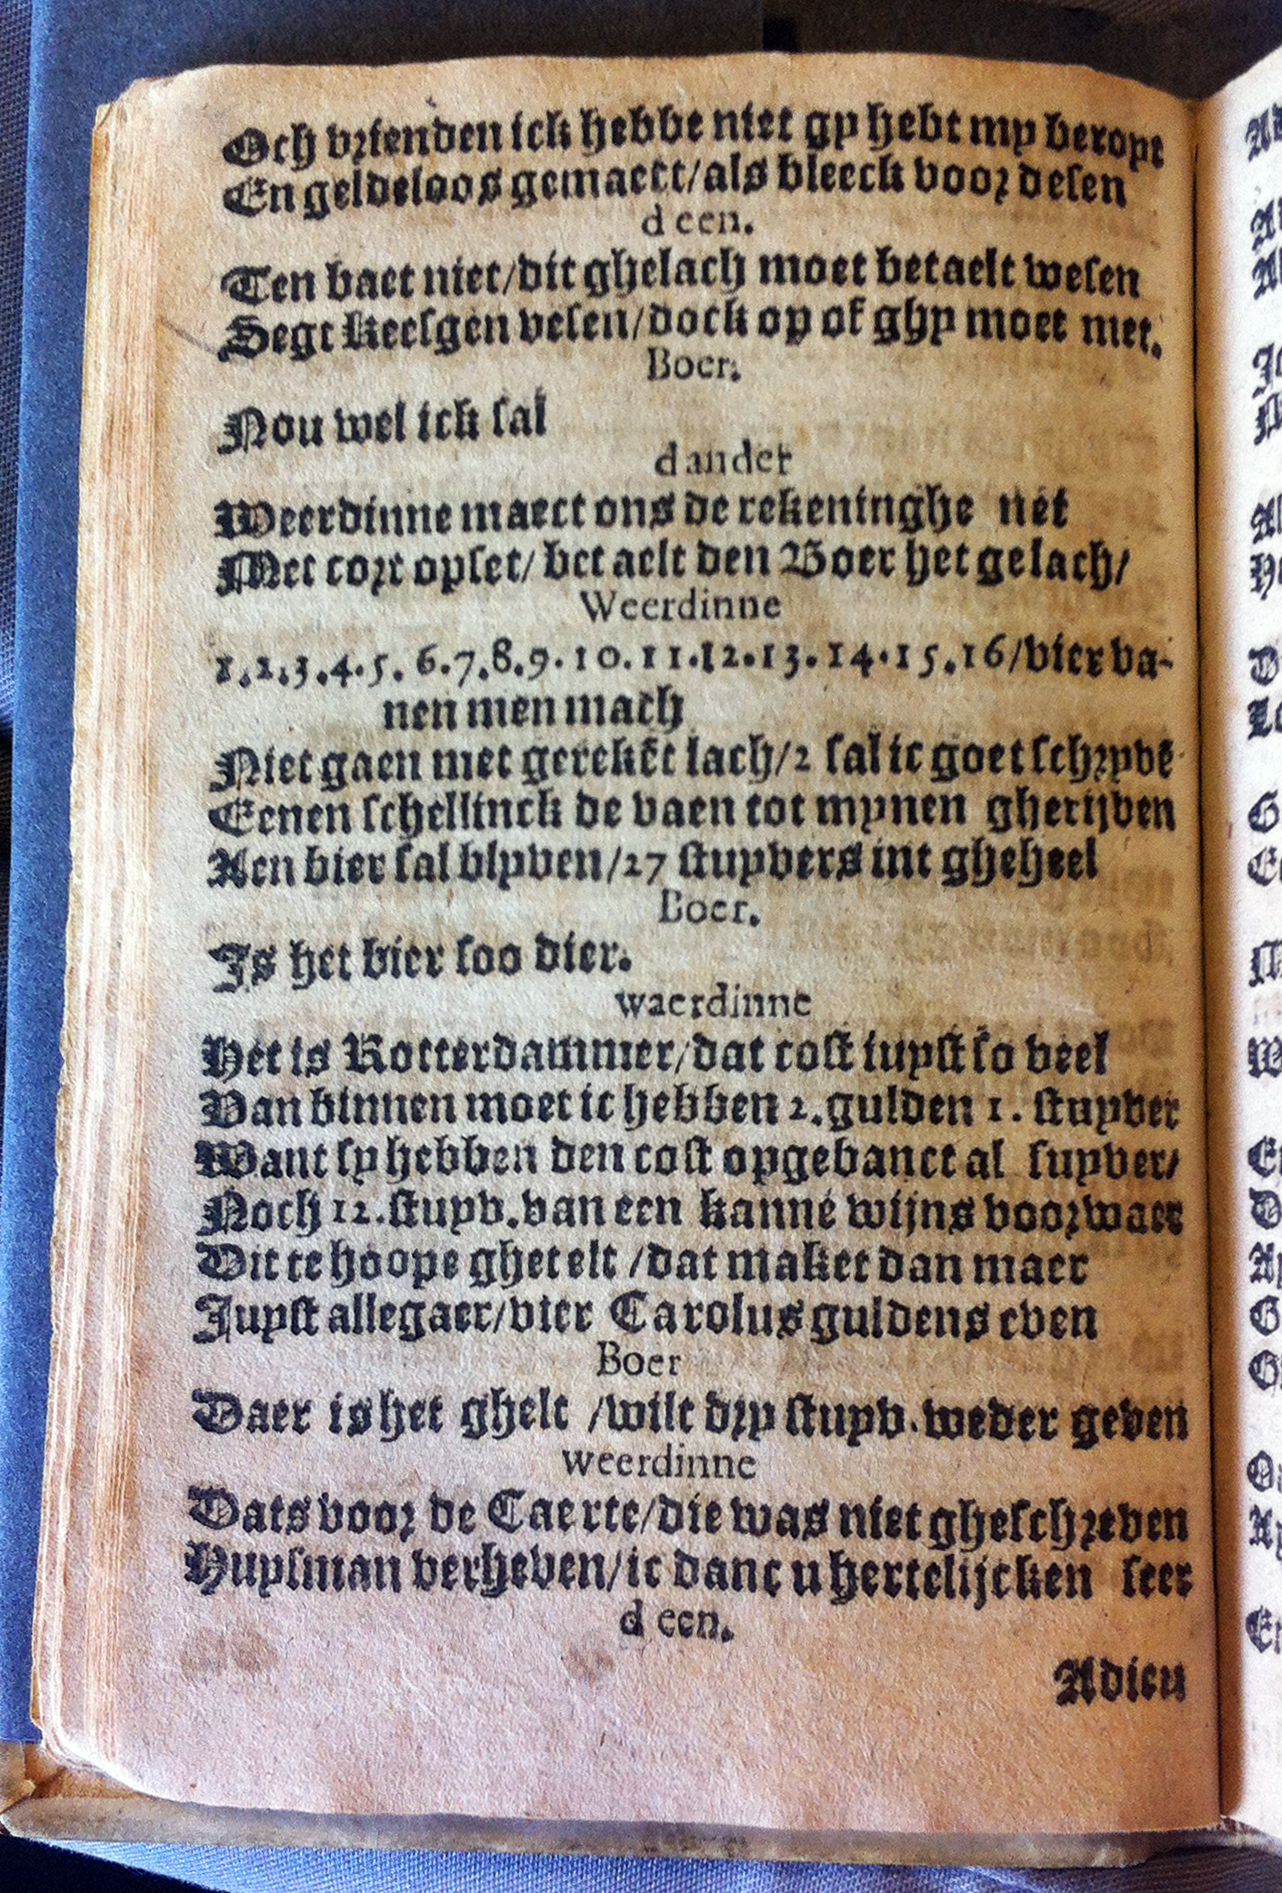 Och vrienden ick hebbe niet gy hebt my beropt
En geldeloos gemaect/als bleeck voor desen
d een.
Ten baet niet/dit ghelach moet betaelt wesen
Segt keesgen vesen/dock op of ghy moet met.
Boer.
Nou wel ick sal
d ander
Weerdinne maect ons de rekeninghe net
Met cort opset/ betaelt den Boer het gelach/
Weerdinne
1.2.3.4.5.6.7.8.9.10.11.12.13.14.15.16/vier va-
nen men mach
Niet gaen met gerekēt lach/2 sal ic goet schryvē
Eenen schellinck de vaen tot mynen gherijven
Aen bier sal blyven/27 stuyvers int gheheel
Boer.
Is het bier soo dier.
waerdinne
Het is Rotterdammer/dat cost iuyst so veel
Van binnen moet ic hebben 2.gulden 1. stuyver
Want sy hebben den cost opgebanct al suyver/
Noch 12.stuyv.van een kanne wijns voorwaer
Dit te hoope ghetelt /dat maket dan maer
Iuyst allegaer/vier Carolus guldens even
Boer
Daer is het ghelt /wilt dry stuyv.weder geven
weerdinne
Dats voor de Caerte/die was niet gheschreven
Huysman verheven/ic danc u hertelijcken seer
d een.
Adieu